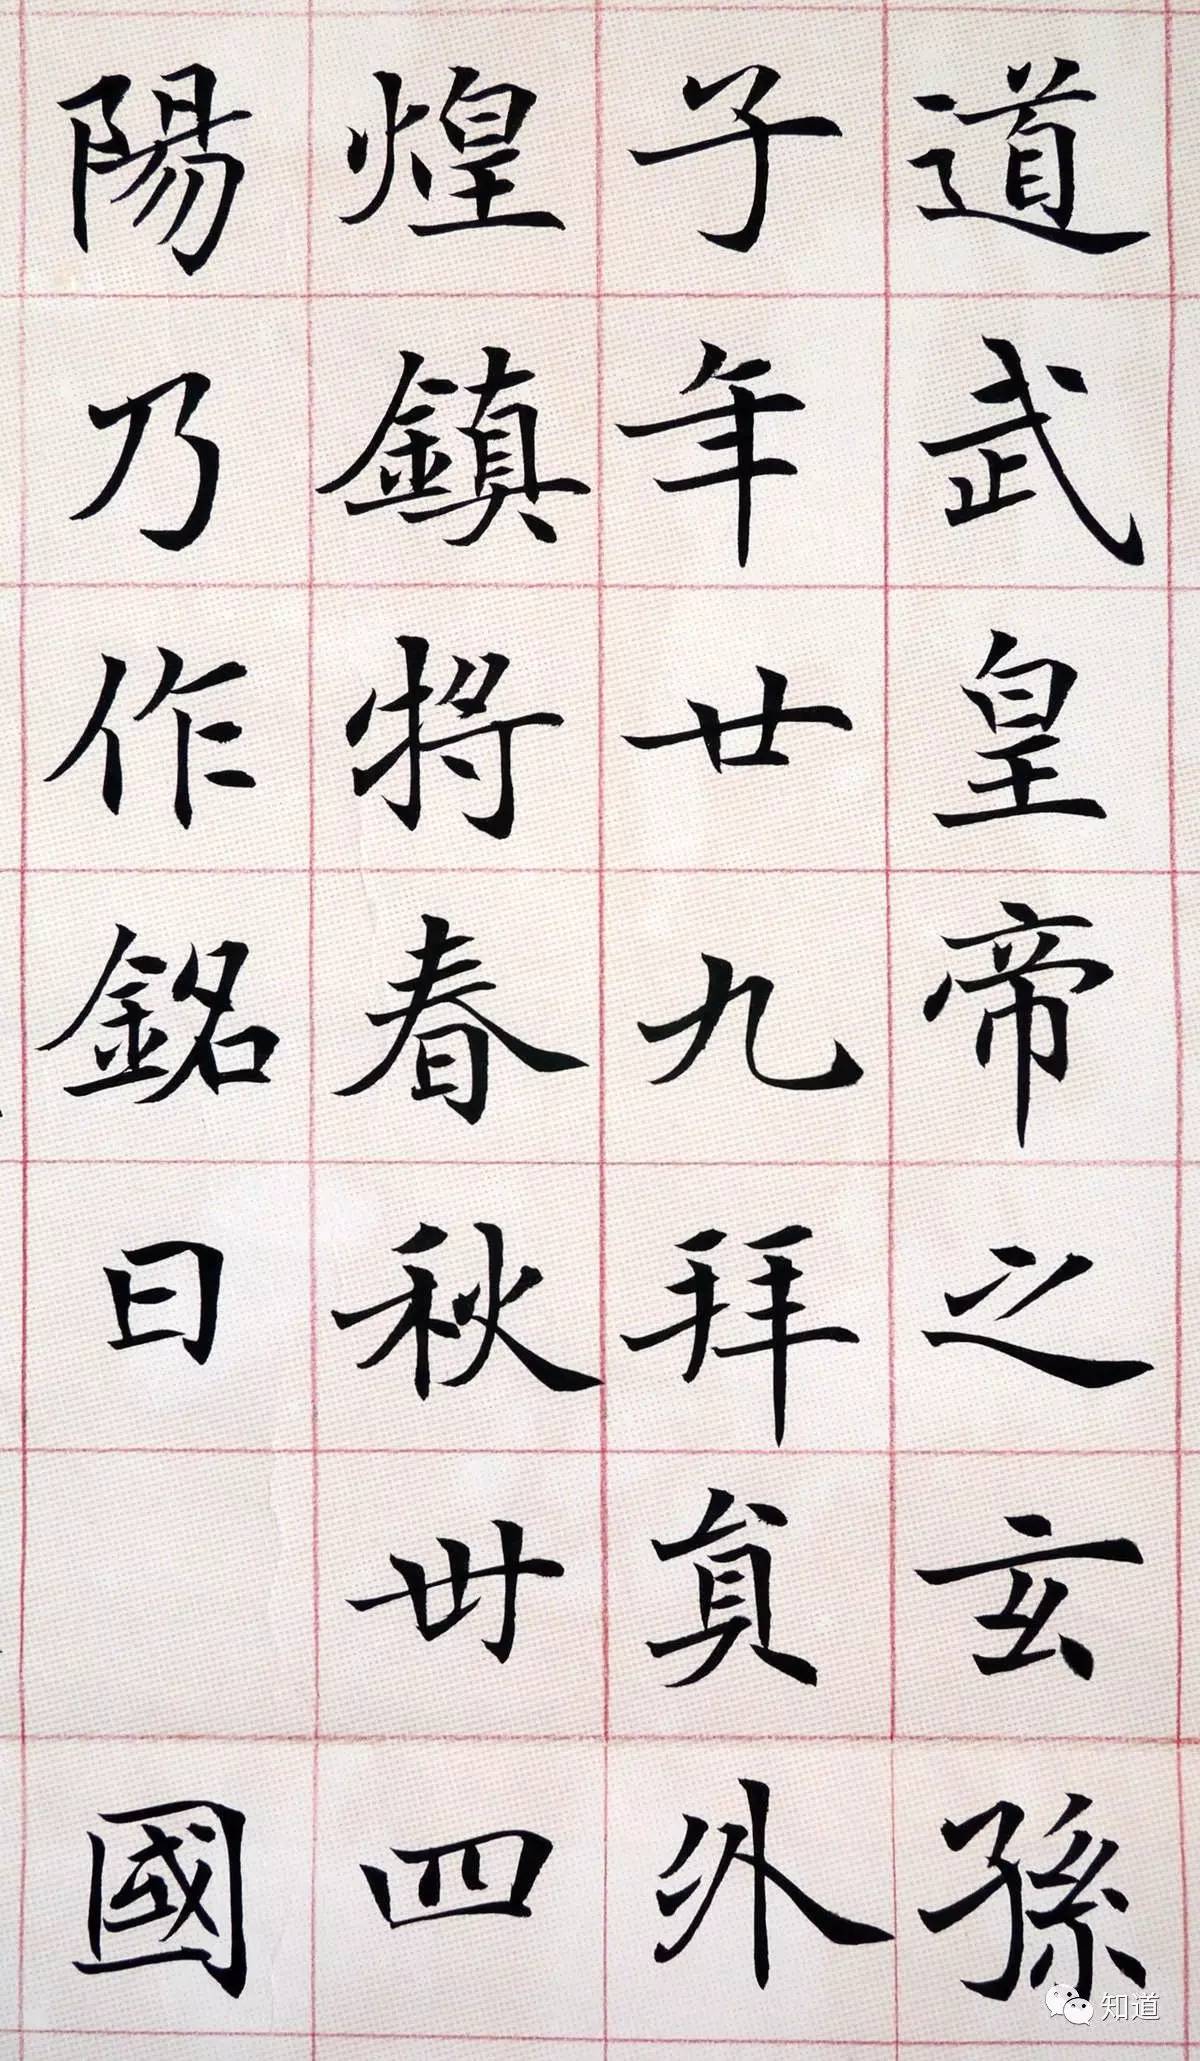 道武皇帝之玄孫
子年廿九拜員外
煌鎮將春秋卌四
陽乃作銘曰國
知道